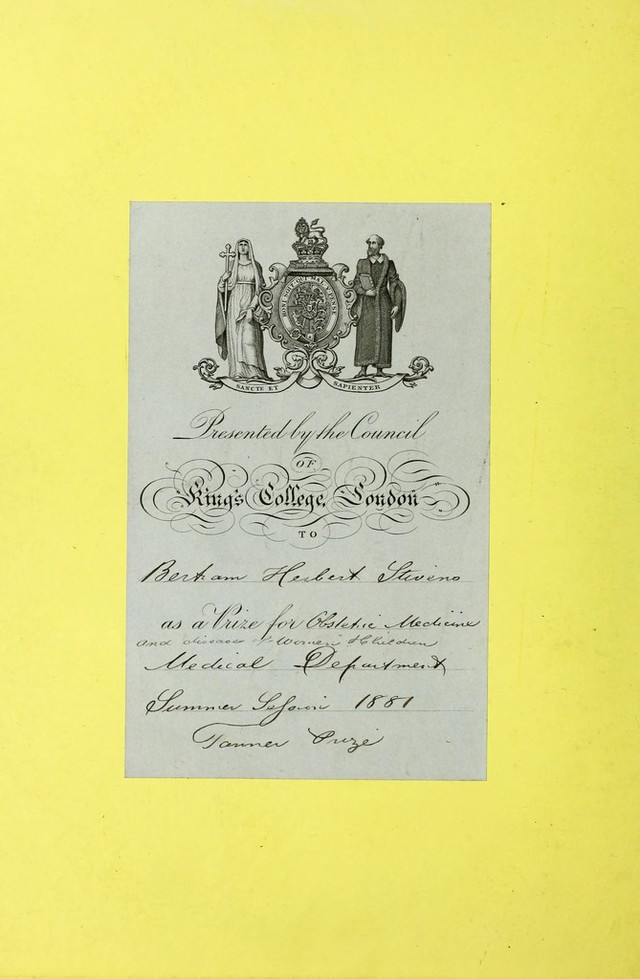 HONI SOIT QUI MAL Y PENSE
SANCTE ET SAPIENTER
Presented by the Council
OF
King's College, London
TO
Bertram Herbert Stivens
as a Prize for Obstetric Medicine
and diseases of Women & Children
Medical Department
Summer Session 1881
Tanner Prize